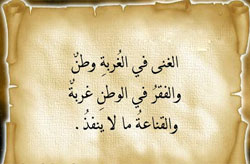 الغنى في الغُربةِ وطنٌ
والفقرُ في الوطنِ غربةٌ
والقناعةُ ما لا ينفذُ .